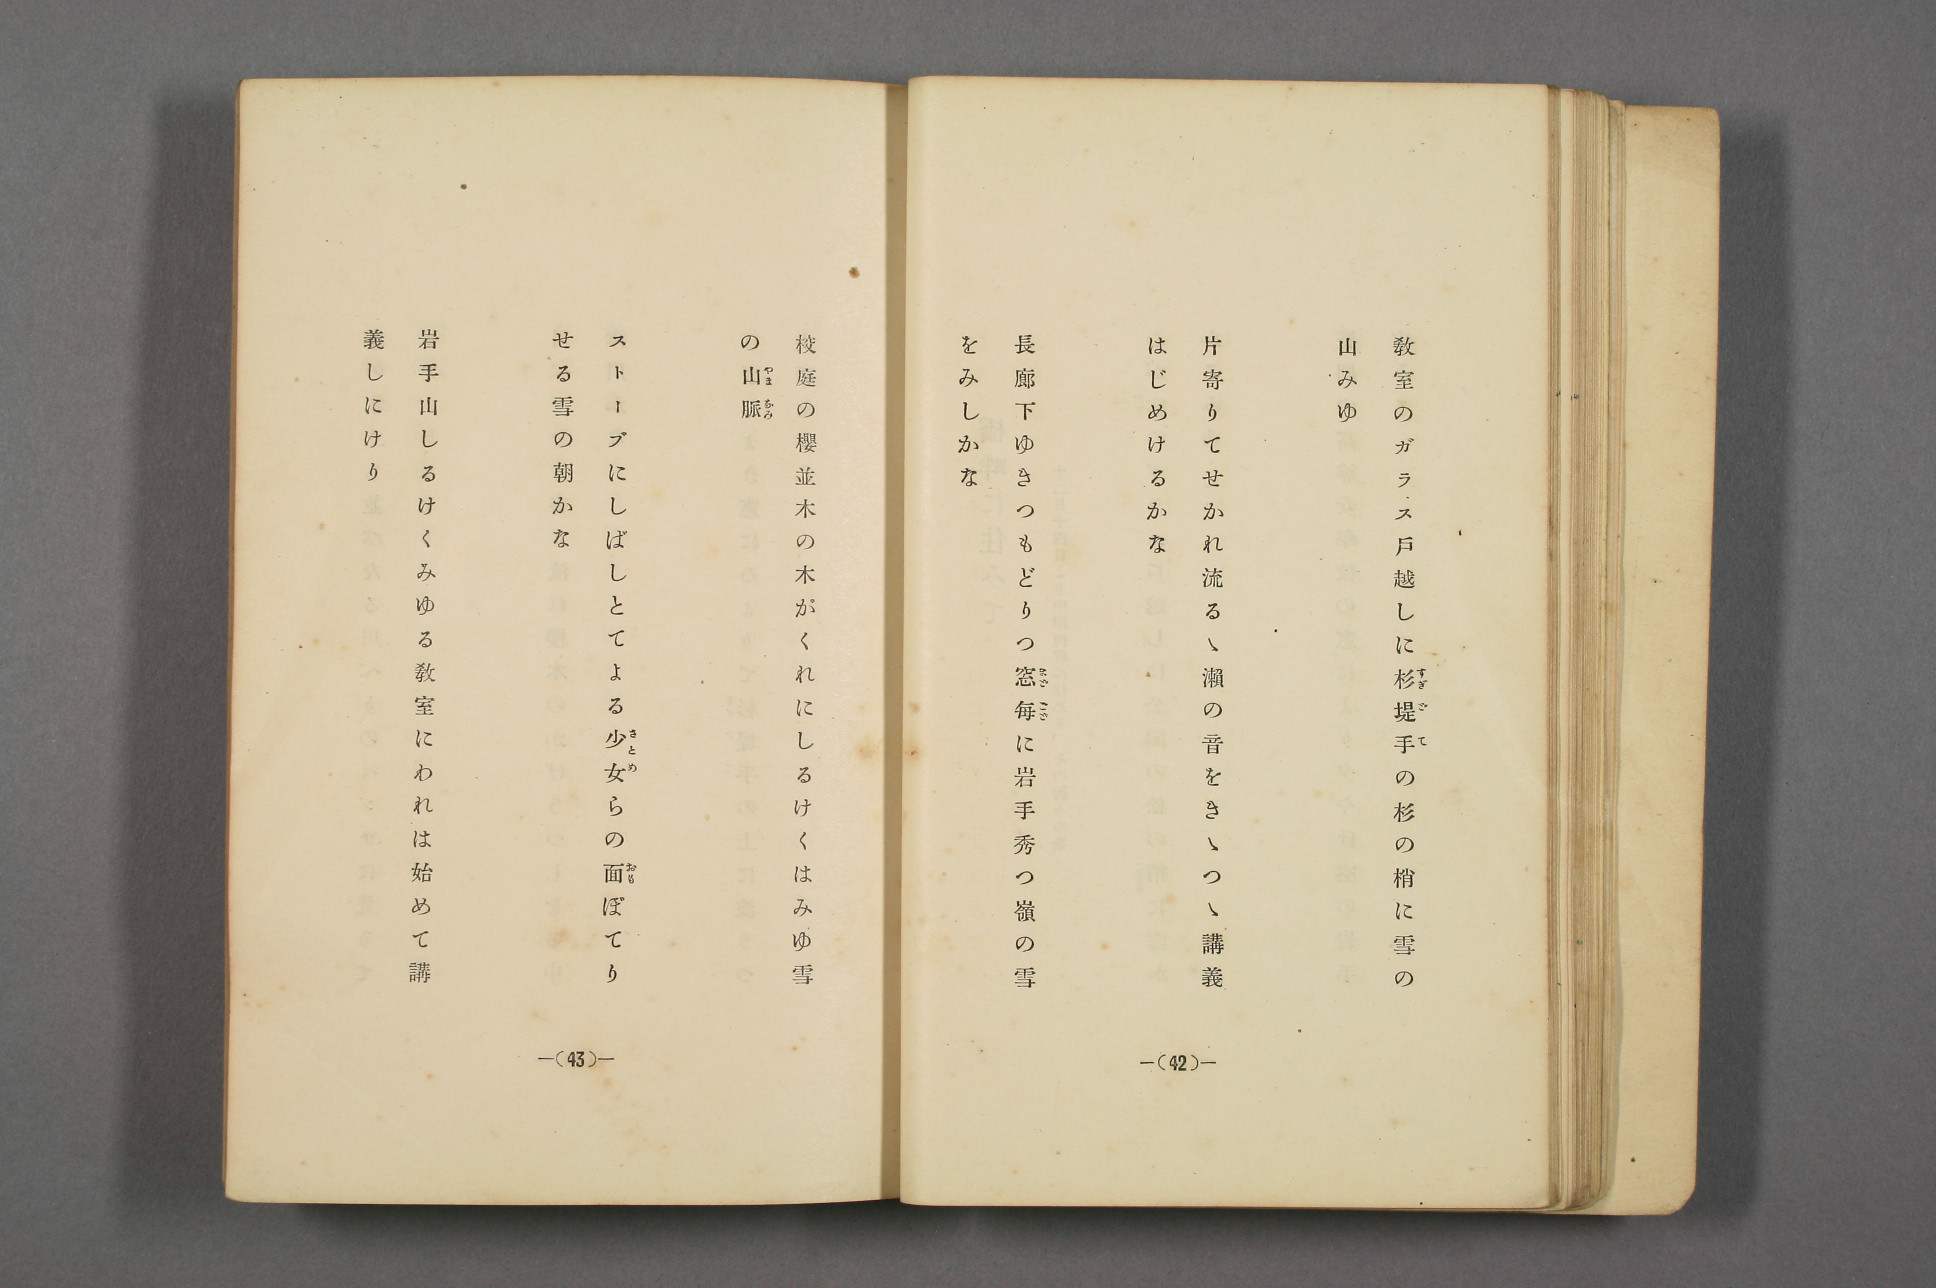 教室のガラス戸越しに杉堤手の杉の梢に雪の
山みゆ
片寄りてせかれ流るゝ瀬の音をきゝつゝ講義
はじめけるかな
長廊下ゆきつもどりつ窓毎に岩手秀つ嶺の雪
をみしかな
―(42)―
校庭の櫻並木の木がくれにしるけくはみゆ雪
の山脈
ストーブにしばしとてよる少女らの面ぽてり
せる雪の朝かな
岩手山しるけくみゆる教室にわれは始めて講
義しにけり
―(43)―